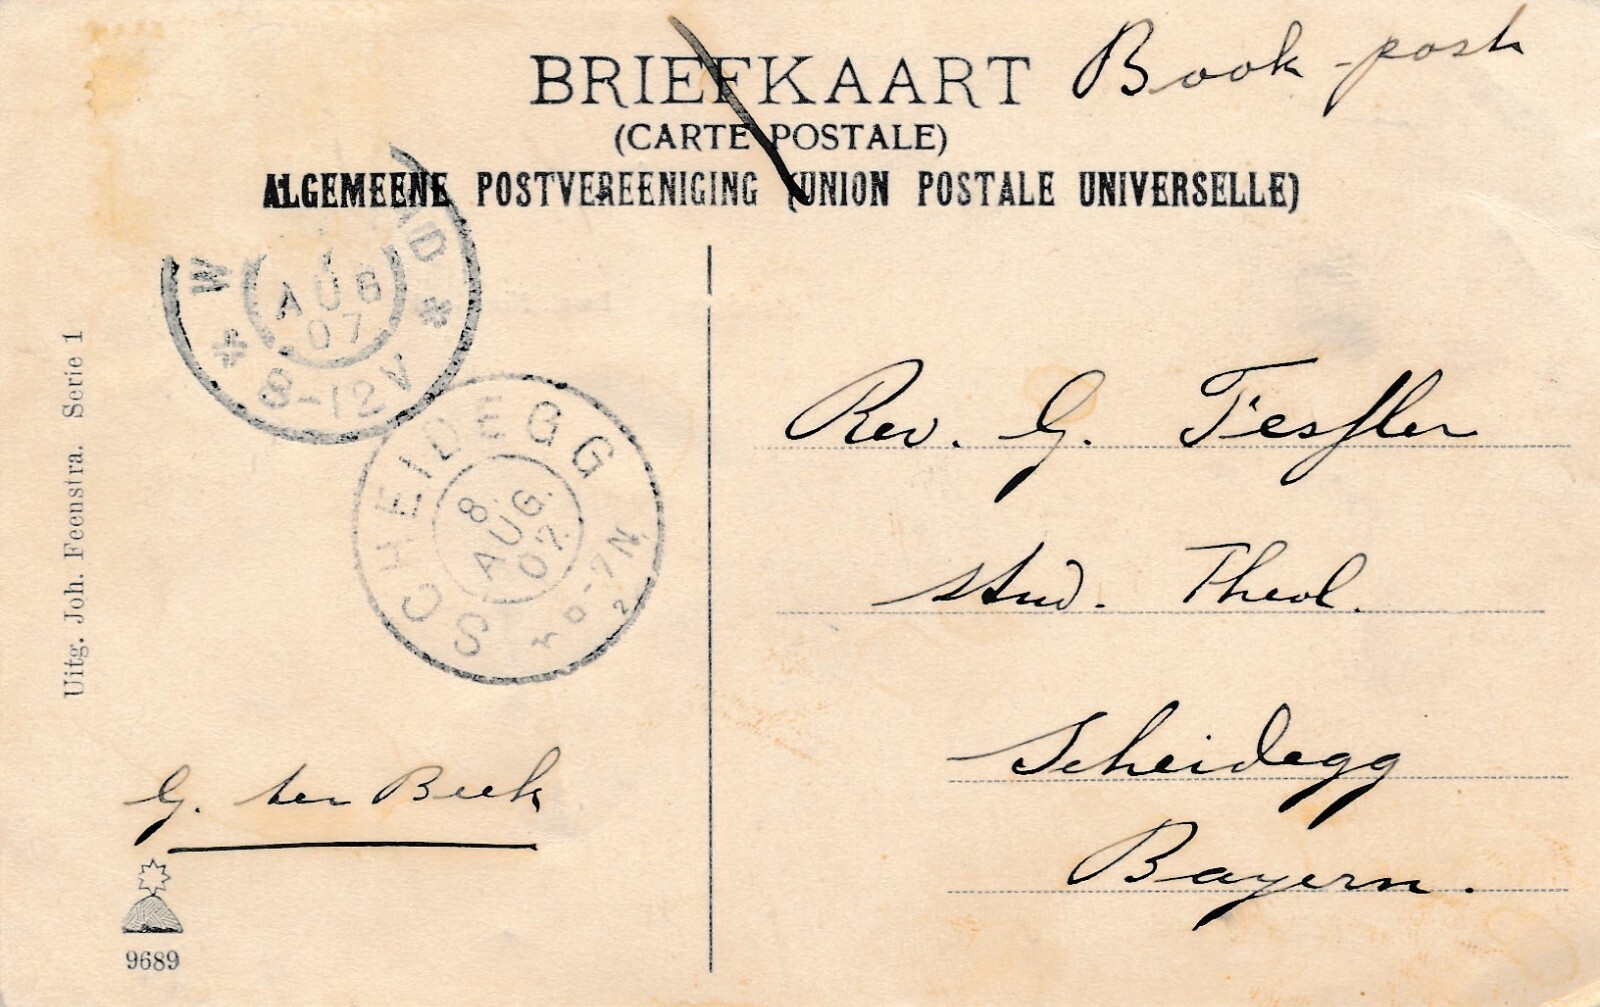 BRIEFKAART
Book-post
(CARTE POSTALE)
ALGEMEENE POSTVEREENIGING (UNION POSTALE UNIVERSELLE)
AUG
07
8-12V
SCHEIDEGG
8.
AUG.
07.
Uitg. Joh. Feenstra. Serie 1
Rev. G. Fessler
stud. Theol.
Scheidegg
Bayern.
G. ter Beek
9689